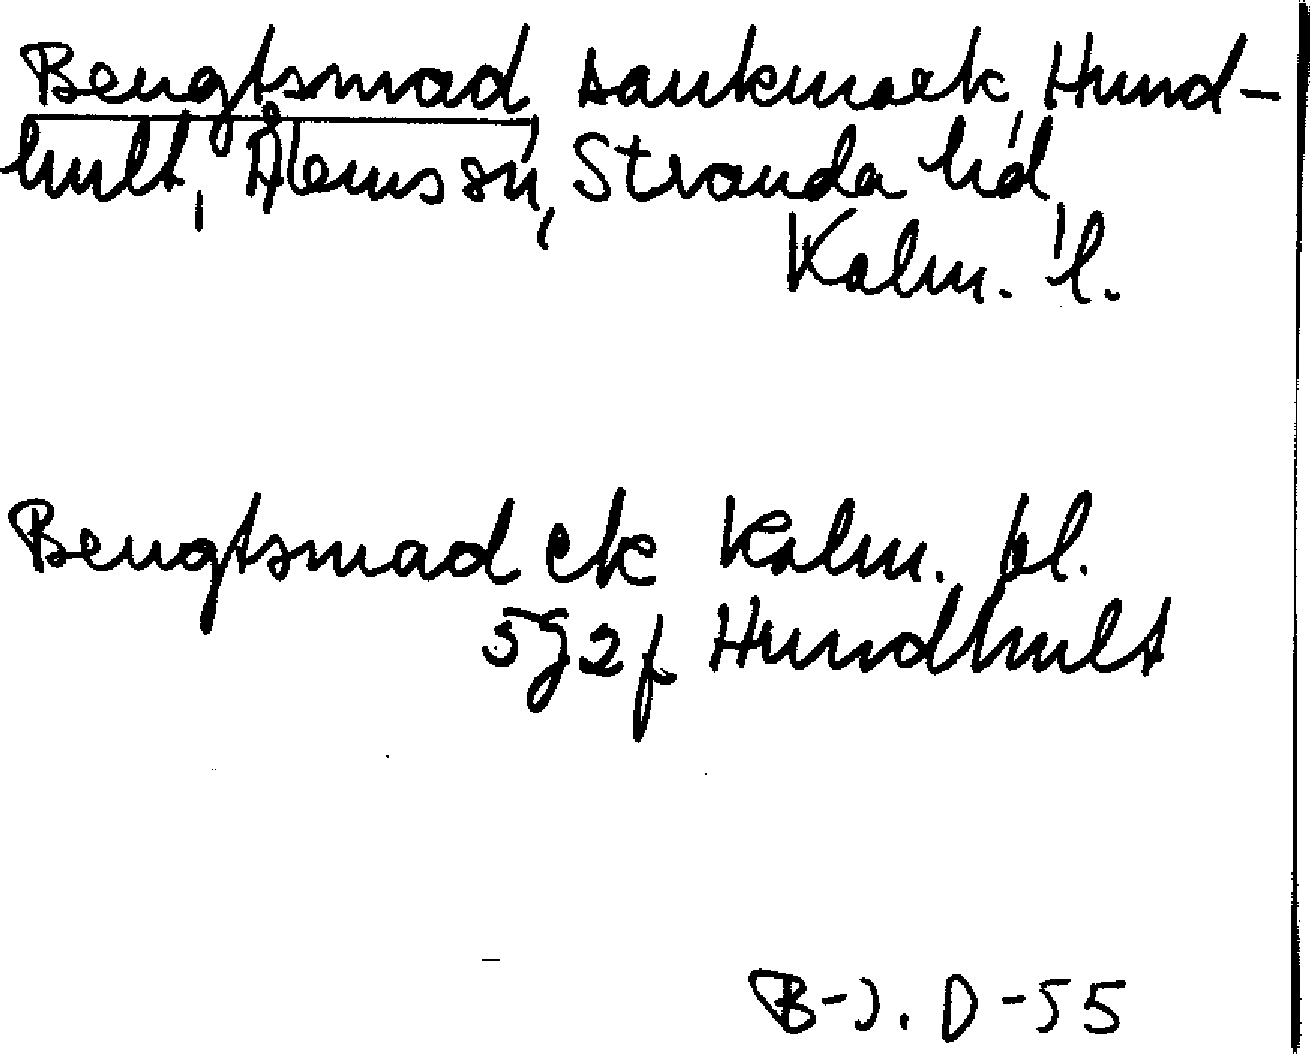 Bengtsmad, sankmark, Hund-
hult, Ålems sn, Stranda hd,
Kalm. l.
Bengtsmad ek Kalm. bl.
5g2f Hundhult
B-J. D-55